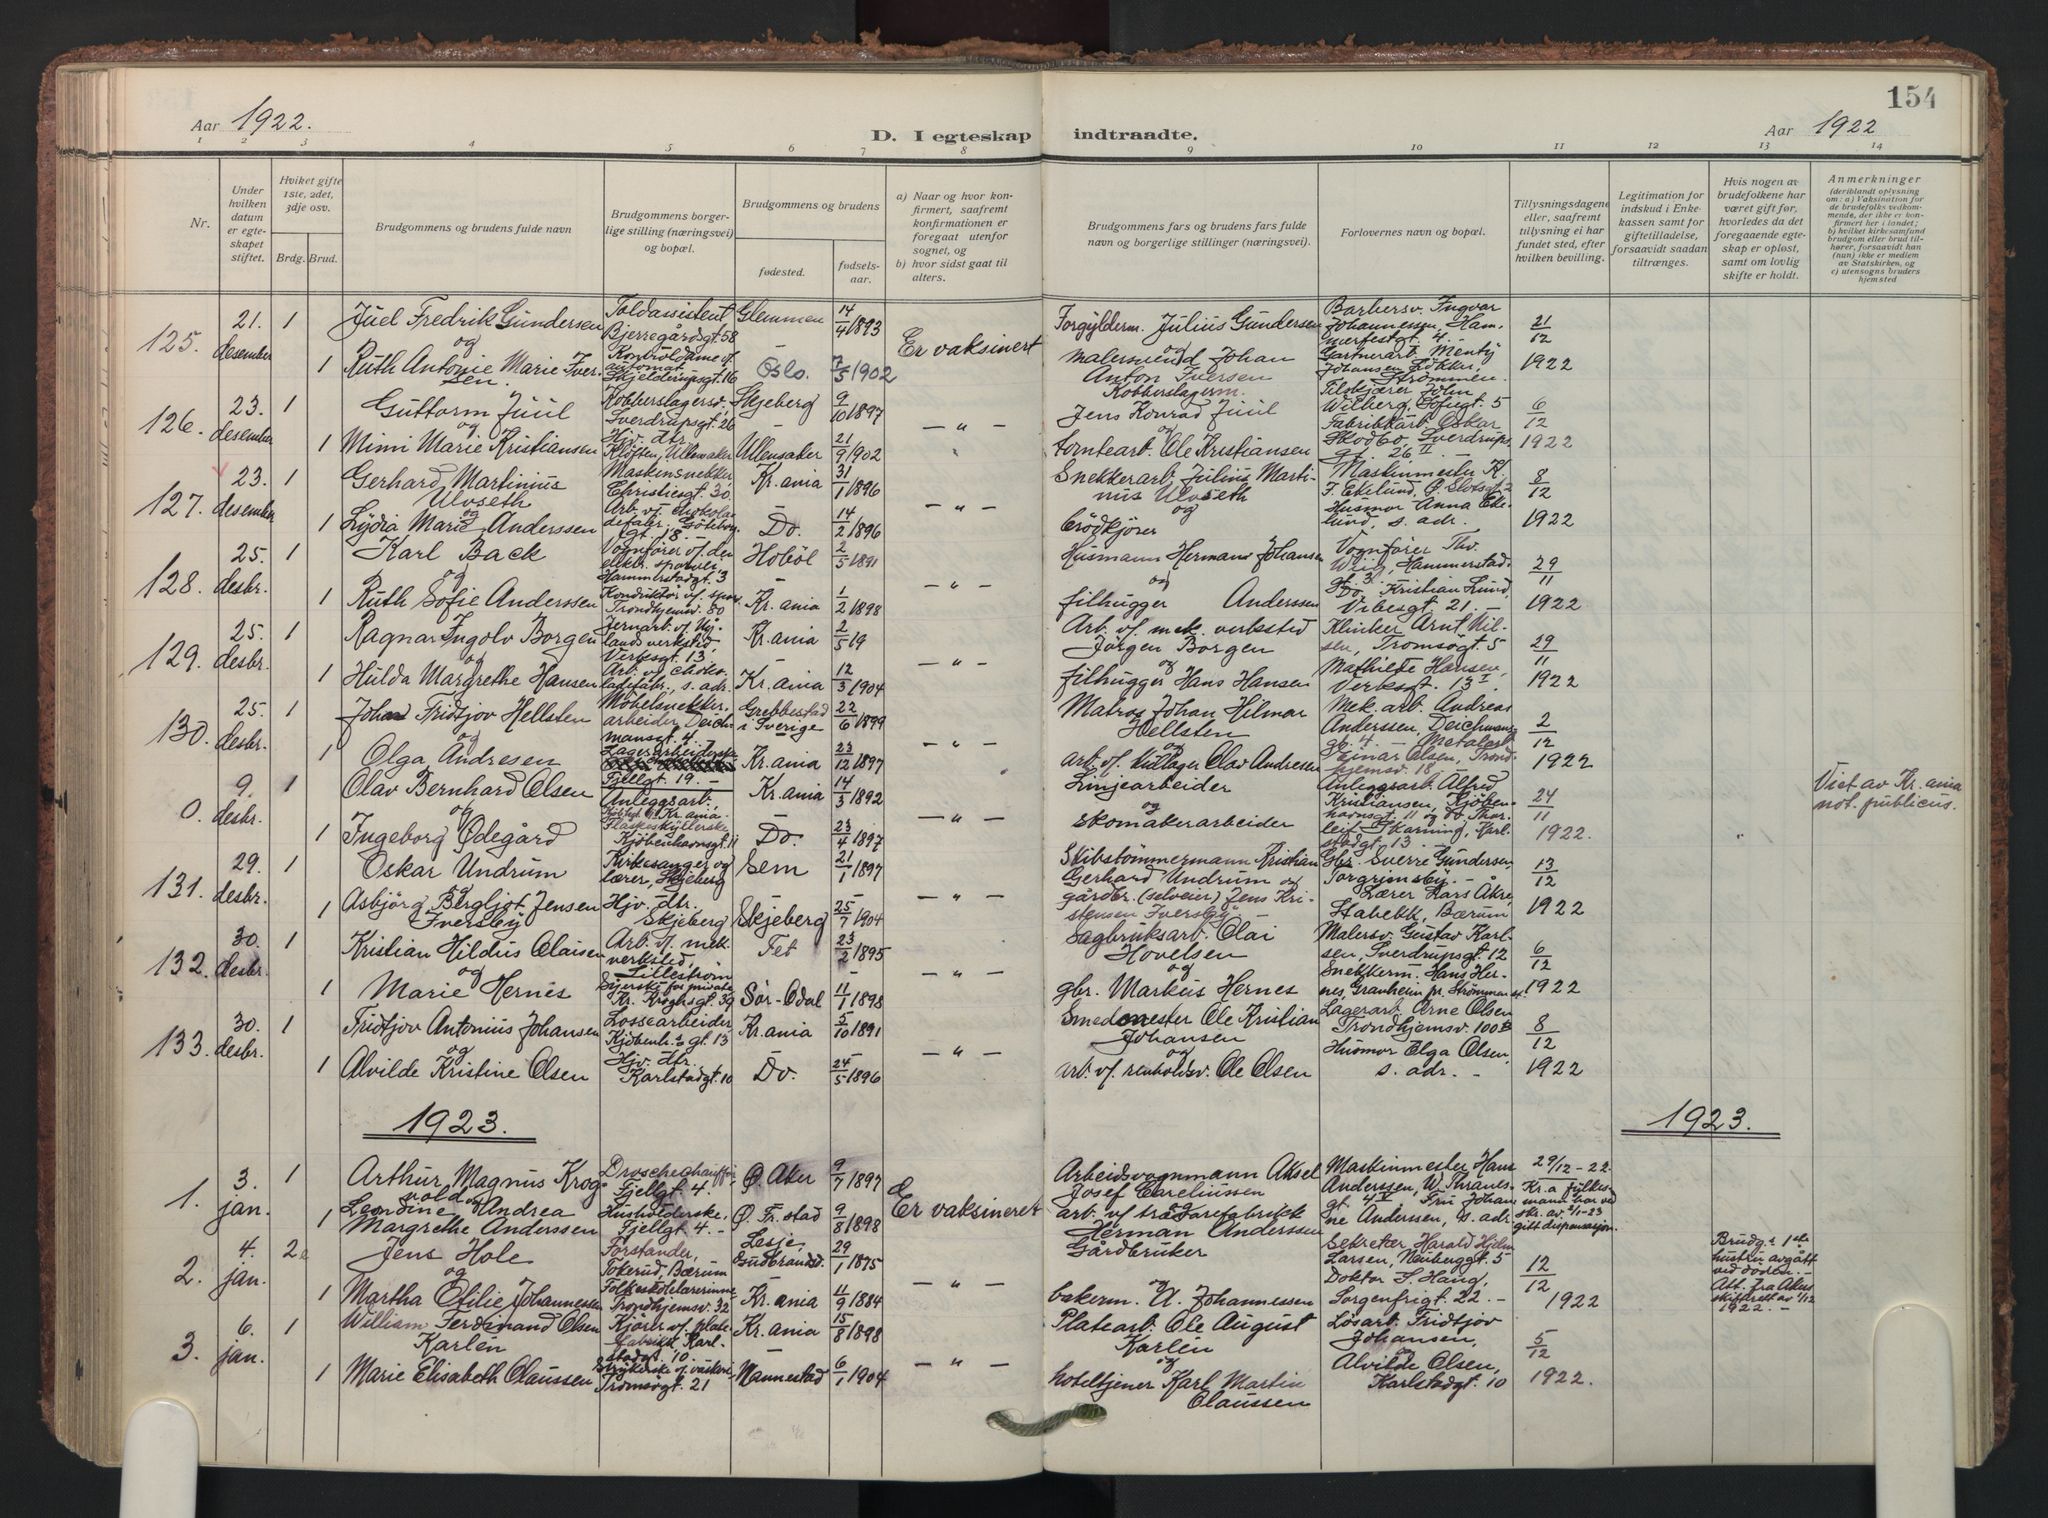 154
Aar 1922.
D. I egteskap indtraadte.
Aar 1922
1 2 3 4 5 6 7 8 9 10 11 12 13 14
Nr.
Under hvilken datum er egteskapet stiftet.
Hvilket gifte 1ste, 2det, 3dje osv.
Brdg. Brud.
Brudgommens og brudens fulde navn
Brudgommens borgerlige stilling (næringsvei) og bopæl.
Brudgommens og brudens
fødested.
fødselsaar.
a) Naar og hvor konfirmert, saafremt konfirmationen er foregaat utenfor sognet, og
b) hvor sidst gaat til alters.
Brudgommens og brudens fars fulde navn og borgerlige stillinger (næringsvei).
Forlovernes navn og bopæl.
Tillysningsdagene eller, saafremt tillysning ei har fundet sted, efter hvilken bevilling.
Legitimation for indskud i Enkekassen samt for giftetilladelse, forsaavidt saadan tiltrænges.
Hvis nogen av brudefolkene har været gift før, hvorledes da det foregaaende egteskap er opløst, samt om lovlig skifte er holdt.
Anmerkninger
(deriblandt oplysning om: a) Vaksination for de brudefolks vedkommende, der ikke er konfirmert her i landet; b) hvilket kirkesamfund brudgom eller brud tilhører, forsaavidt han (hun) ikke er medlem av Statskirken, og c) utensogns bruders hjemsted
125. 21. desember 1 Juel Fredrik Gundersen Toldassistent Bjerregårdsgt. 58 Glemmen 14/4 1893 Er vaksinert Forgylderm. Julius Gundersen Barbersv. Ingvar Johannessen, Hammerfestgt. 4. 21/12 1922
og
1 Ruth Antonie Marie Iversen. Kontroldame v/ automat, Skjelderupsgt. 16 Oslo. 7/5 1902 malersvend Johan Anton Iversen Gartnerarb. Johansen Strømmen.
126. 23. desember 1 Guttorm Juul Kobberslagersv. Sverdrupsgt. 26 Skjeberg 9/10 1897 — " — Kobberslagerm. Jens Konrad Juul Wilberg, Sofiegt. 5 6/12 1922
og
1 Mimi Marie Kristiansen Hjv. dtr. Kløften, Ullensaker Ullensaker 21/9 1902 tomtearb. Ole Kristiansen Fabrikkarb. Oskar Skodbo, Sverdrupsgt. 26 II
127. 23. desember 1 Gerhard Martinius Ulvseth Maskinsnekker Christiesgt. 30, Kr.ania 31/1 1896 — " — Snekkerarb. Julius Martinus Ulvseth Maskinmester K. F. Ekelund, Ø. Slotsgt. 2 8/12 1922
og
1 Lydia Marie Anderssen Arb. v/ chokoladefabr., Göteborggt. 18 Do. 14/2 1896 Brødkjører Husmor Anna Ekelund, s. adr.
128. 25. desbr. 1 Karl Back Vognfører v/ den elektr. sporvei, Hammerstadgt. 3 Hobøl 2/5 1891 — " — Husmann Herman Johansen Vognfører Thv. Wiig, Hammerstadgt. 3. 29/11 1922
og
1 Ruth Sofie Anderssen Konduktør v/ sporv. Trondhjemsv. 80 Kr.ania 1/2 1898 filhugger Anderssen do. Kristian Lund, Vibesgt. 21. —
129. 25. desbr. 1 Ragnar Ingolv Borgen Jernarb. v/ Nylands verksted, Verksgt. 13, Kr.ania 2/5 19 — " — Arb. v/ mek. verksted Jørgen Borgen Klinker Arnt Nilsen, Tromsøgt. 5 29/11 1922
og
1 Hulda Margrethe Hansen Arb. v/ chokoladefabr., s. adr. Kr.ania 12/3 1904 filhugger Hans Hansen Mathilde Hansen, Verksgt. 13 I.
130. 25. desbr. 1 Johan Fridtjov Hellsten Møbelsnekkerarbeider, Deichmansgt. 4. — Grebbestad i Sverige 22/6 1899 — " — Matros Johan Hilmar Hellsten Mek. arb. Andreas Anderssen, Deichmansgt. 4. — 2/12 1922
og
1 Olga Andresen Lagerarbeiderske Fjellgt. 19. — Kr.ania 23/12 1897 arb. v/ kullager Olav Andresen Metalarb. Einar Olsen, Trondhjemsv. 18
0. 9. desbr. 1 Olav Bernhard Olsen Anleggsarb., Kr.ania Kr.ania 14/3 1892 — " — Linjearbeider Anleggsarb. Alfred Kristiansen, Kjøbenhavnsgt. 11 24/11 1922. Viet av Kr.ania not. publicus.
og
1 Ingeborg Ødegård Flaskeskyllerske Kjøbenhavnsgt. 11 Do. 23/4 1897 skomakerarbeider og do. Thorleif Skarning, Karlstadgt. 13 —
131. 29. desbr. 1 Oskar Undrum Kirkesanger og lærer, Skjeberg Sem 21/1 1897 — " — Skibstømmermann Kristian Gerhard Undrum og Gbr. Sverre Gundersen, Torgrimsby. — 13/12 1922
og
1 Asbjörg Bergljot Jensen Iversby Hjv. dtr, Skjeberg Skjeberg 25/7 1904 gårdbr. (selveier) Jens Kristensen Iversby Lærer Lars Åkre, Stabekk, Bærum
132. 30. desbr. 1 Kristian Hildus Olaisen Arb. v/ mek. verksted, Lillestrøm Fet 23/2 1895 — " — Sagbruksarb. Olai Hovelsen Malersv. Gustav Karlsen, Sverdrupsgt. 12 6/12 1922
og
1 Marie Hernes Syerske for private Kr. Kroghsgt. 39 Sør-Odal 11/1 1898 gbr. Markus Hernes Snekkerm. Hans Hernes, Granheim pr. Strømmen st.
133. 30. desbr. 1 Fridtjov Antonius Johansen Lossearbeider, Kjøbenh. gt. 13 Kr.ania 5/10 1891 — " — Smedmester Ole Kristian Johansen Lagerarb. Arne Olsen Trondhjemsv. 100 B 8/12 1922
og
1 Alvilde Kristine Olsen Hjv. dtr. Karlstadgt. 10 Do. 24/5 1896 arb. v/ renholdsv. Ole Olsen Husmor Olga Olsen, s. adr. —
1923. 1923.
1. 3. jan. 1 Arthur Magnus Krogvold og Droschechauffør, Fjellgt. 4. Ø. Aker 9/7 1897 Er vaksineret Arbeidsvognmann Aksel Josef Careliussen Maskinmester Hans Anderssen, W. Thranesgt. 4 29/12-22. Kr.a fylkesmann har ved skr. av 2/1-23 gitt dispensasjon.
1 Leondine Andrea Margrethe Anderssen Husholderske, Fjellgt. 4. — Ø. Fr.stad 9/8 1898 arb. v/ trævarefabrikk Herman Anderssen Fru Johanne Anderssen, s. adr.
2. 4. jan. 2 Jens Hole Forstander, Tokerud, Bærum Lesje, Gudbrandsd. 29/1 1875 — " — Gårdbruker Sekretær Harald Hjelm Larsen, Neuberggt. 5 12/12 1922 Brudg.s 1ste hustru avgått ved døden. — Att. fra Akers skifterett av 1/12 1922. —
og
1 Martha Otilie Johannessen Folkeskolelærerinne Trondhjemsv. 32 Kr.ania 11/9 1884 bakerm. A. Johannessen Doktor S. Haug, Sorgenfrigt. 22. —
3. 6. jan. 1 William Ferdinand Olsen Karlén Kjører v/ platefabrikk Karlstadgt. 10. Kr.ania 15/8 1898 — " — Platearb. Ole August Karlén Løsarb. Fridtjov Johansen, 5/12 1922.
og
1 Marie Elisabeth Claussen Strykerske v/ vaskeri Tromsøgt. 21 Mannestad 6/1 1904 hoteltjener Karl Martin Claussen Alvilde Olsen, Karlstadgt. 10